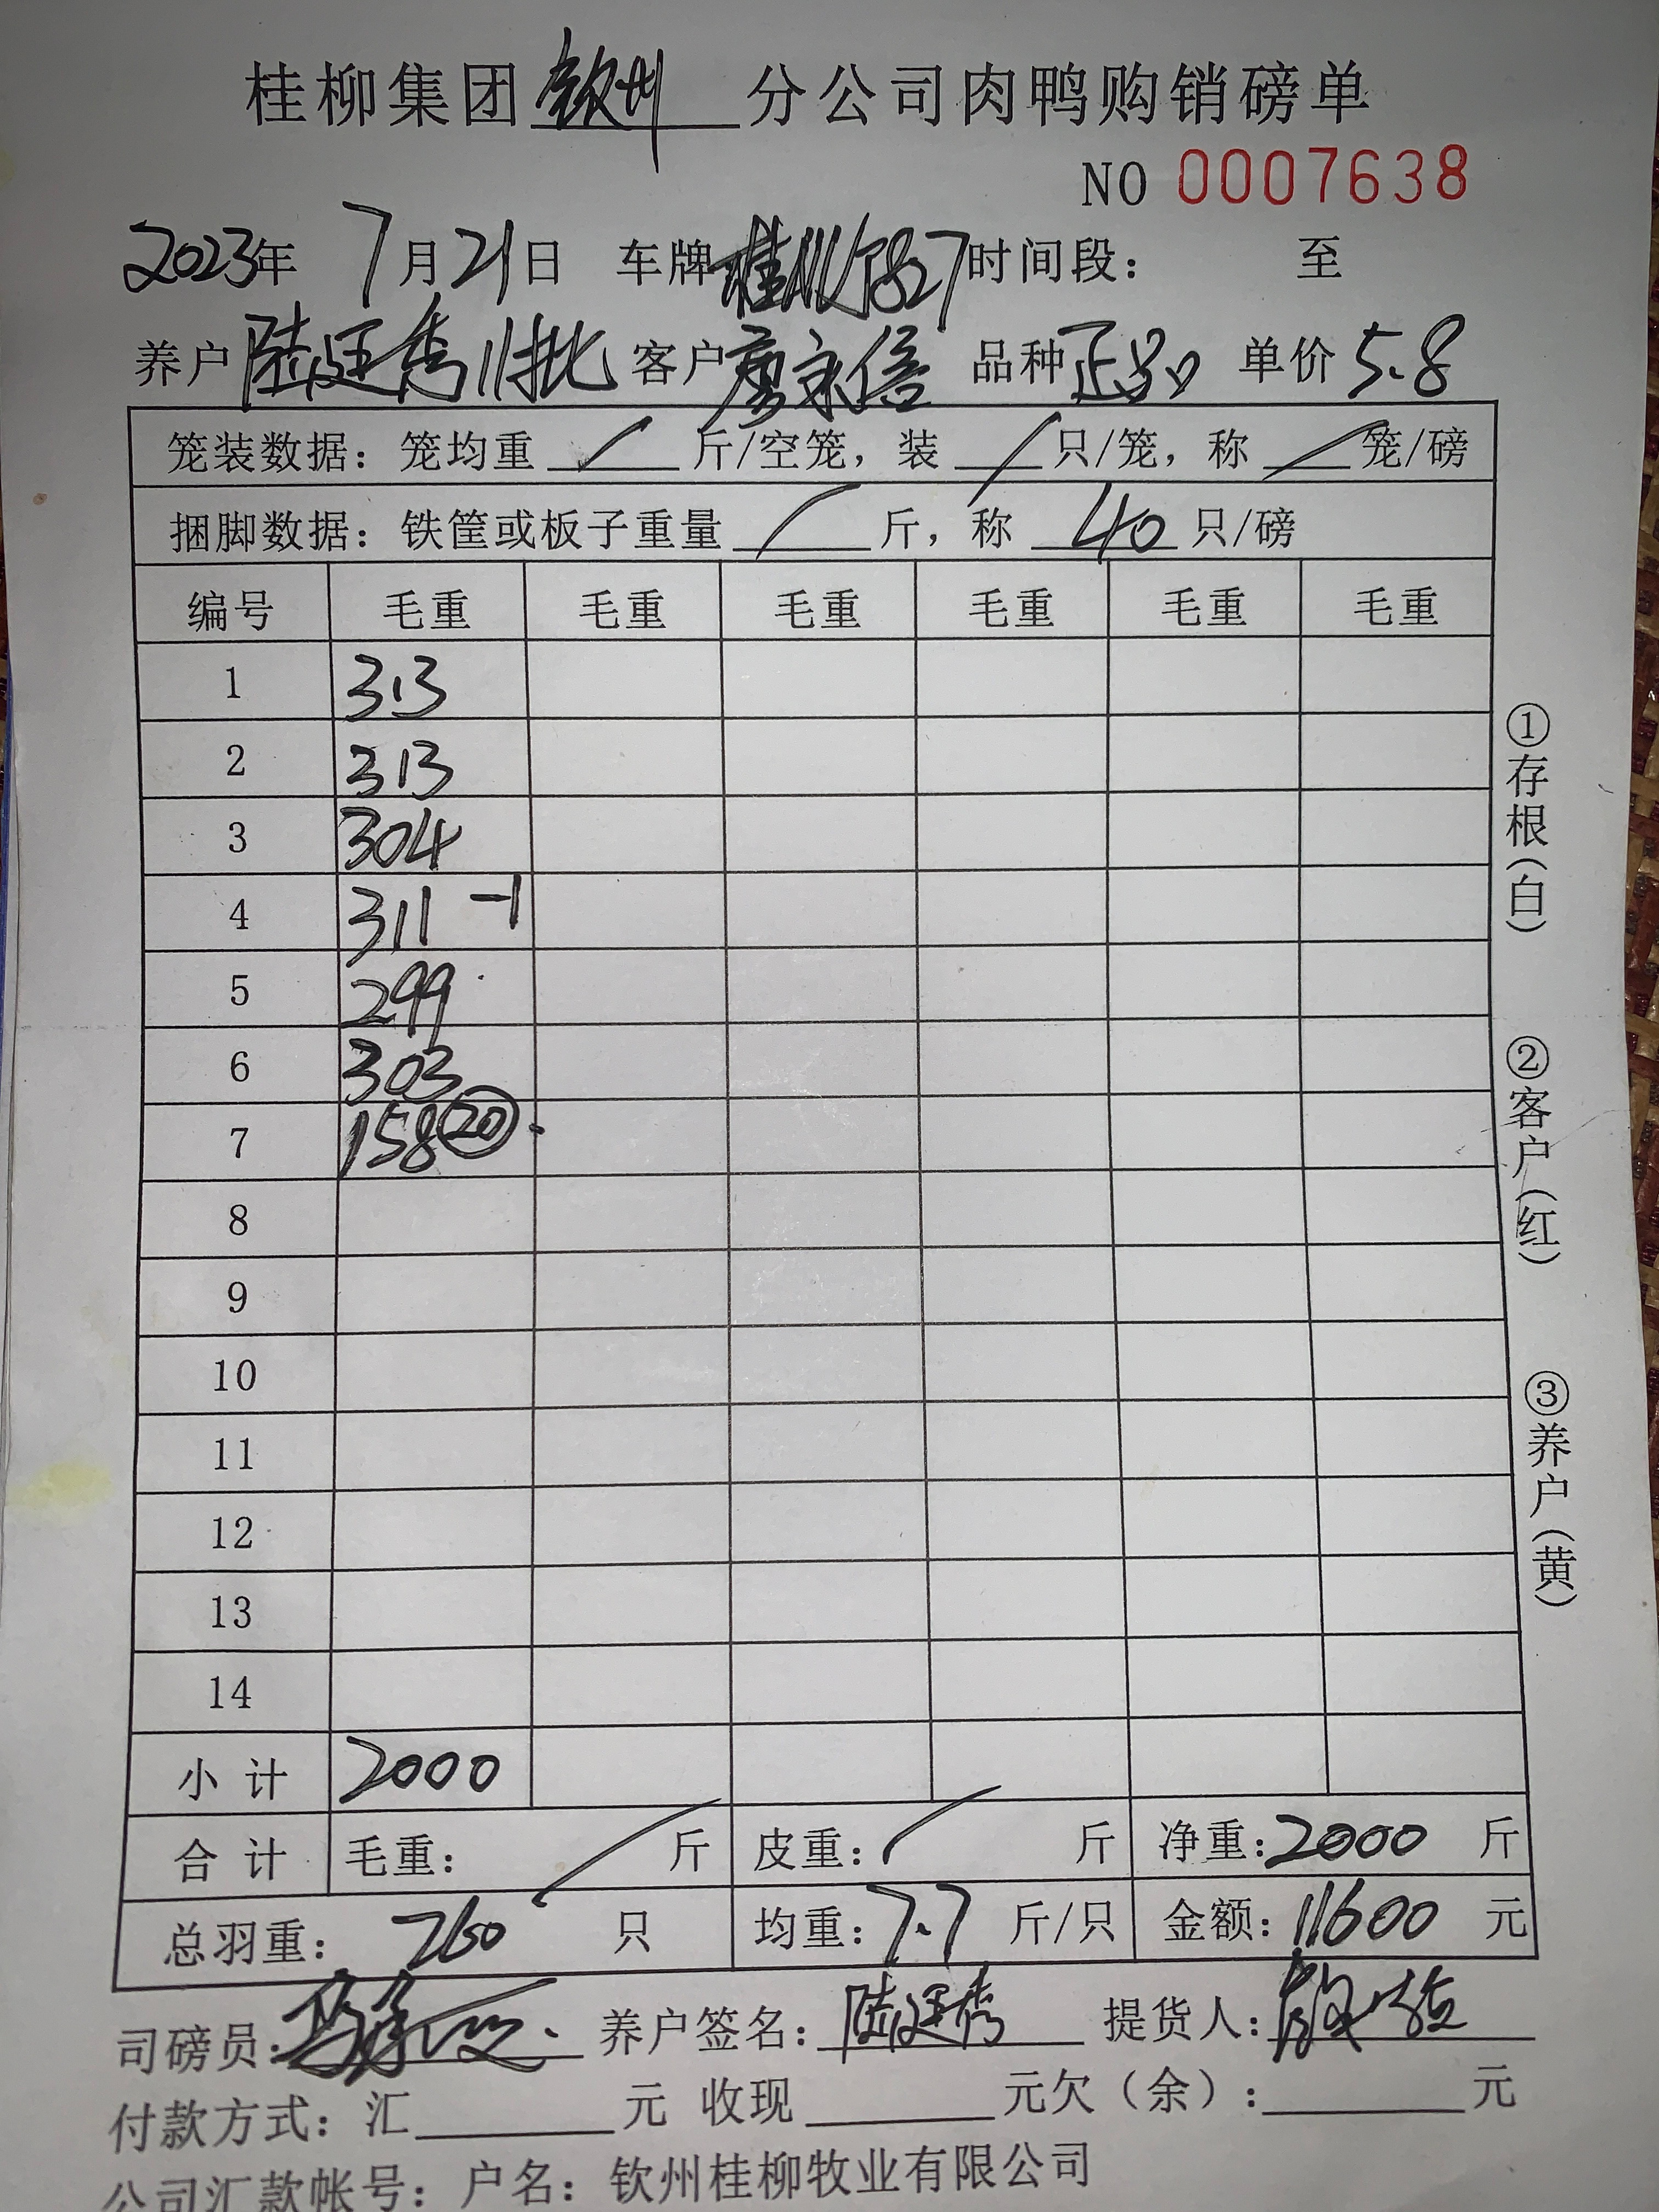 桂柳集团钦州分公司肉鸭购销磅单
NO 0007638
2023年 7月21日 车牌桂 827时间段: 至
养户陆廷秀11批 客户廖永信 品种正品 单价5.8
笼装数据: 笼均重 / 斤/空笼, 装 / 只/笼, 称 / 笼/磅
捆脚数据: 铁筐或板子重量 / 斤, 称 40 只/磅
编号 毛重 毛重 毛重 毛重 毛重 毛重
1 313
2 313
3 304
4 311 -1
5 299
6 303
7 158 20
8
9
10
11
12
13
14
小计 2000
合计 毛重: / 斤 皮重: / 斤 净重: 2000 斤
总羽重: 260 只 均重: 7.7 斤/只 金额: 11600 元
司磅员: 养户签名: 陆廷秀 提货人:
付款方式: 汇 元 收现 元欠(余): 元
公司汇款帐号: 户名: 钦州桂柳牧业有限公司
①存根(白)
②客户(红)
③养户(黄)